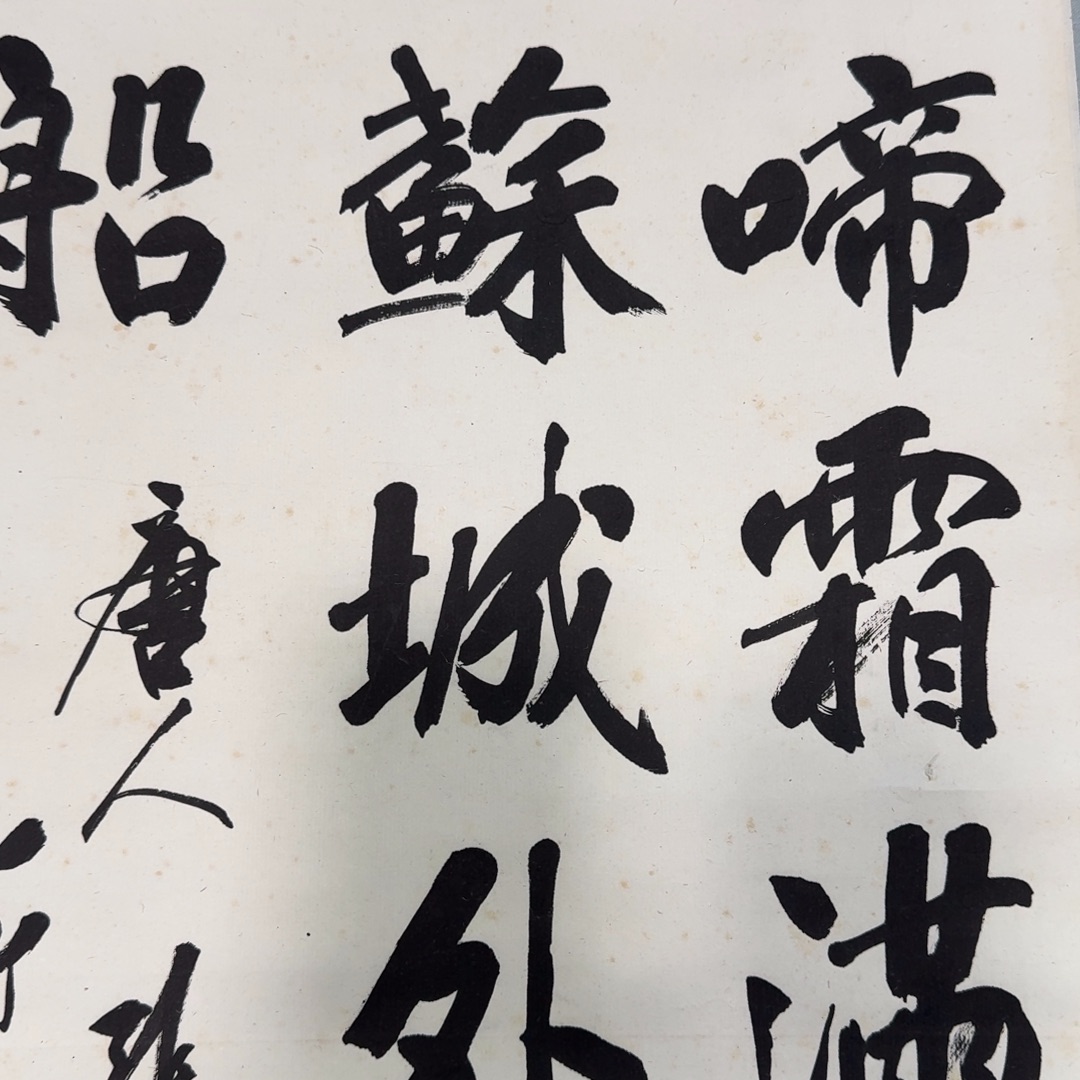 啼霜滿
蘇城外
船
唐人張